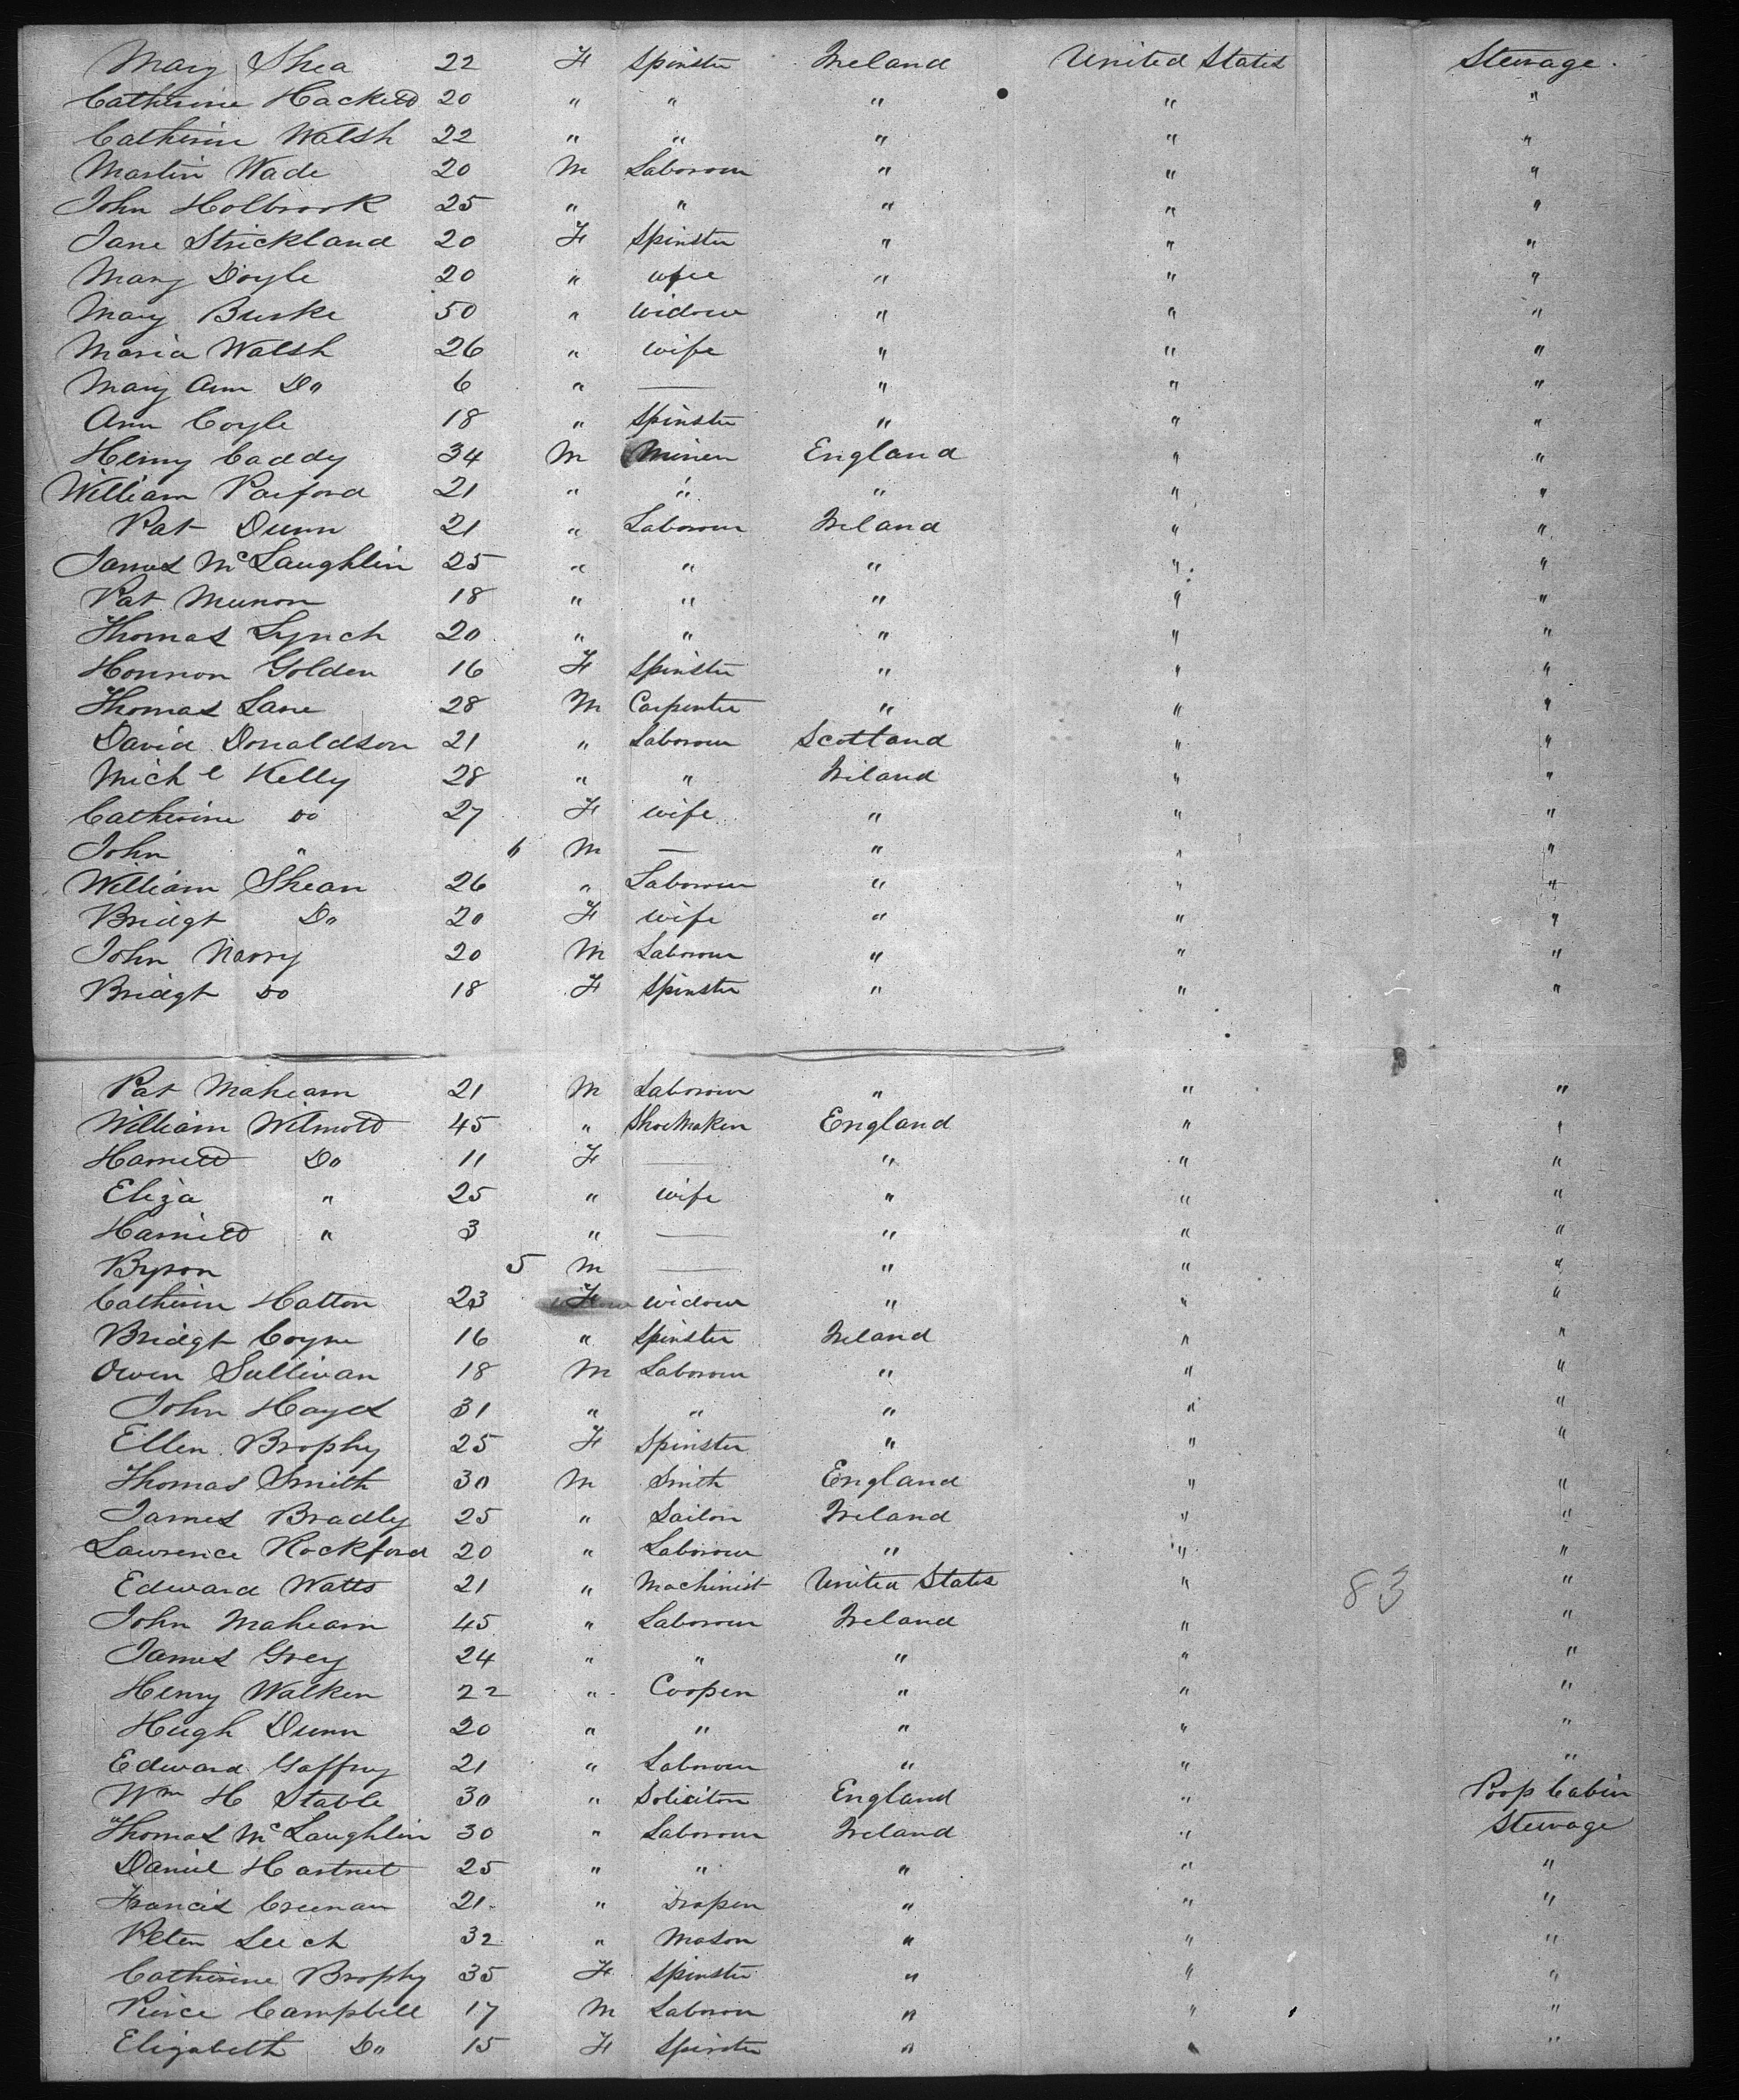 Mary Shea 22 F Spinster Ireland United States Steerage.
Catherine Hackett 20 " " " " "
Catherine Walsh 22 " " " " "
Martin Wade 20 M Laborour " " "
John Holbrook 25 " " " " "
Jane Strickland 20 F Spinster " " "
Mary Doyle 20 " wife " " "
Mary Burke 50 " Widow " " "
Maria Walsh 26 " wife " " "
Mary Ann Do 6 " — " " "
Ann Coyle 18 " Spinster " " "
Henry Caddy 34 M Miner England " "
William Parford 21 " " " " "
Pat Dunn 21 " Laborour Ireland " "
James McLaughlin 25 " " " " "
Pat Munon 18 " " " " "
Thomas Lynch 20 " " " " "
Honnon Golden 16 F Spinster " " "
Thomas Lane 28 M Carpenter " " "
David Donaldson 21 " Laborour Scotland " "
Michl Kelly 28 " " Ireland " "
Catherine Do 27 F wife " " "
John " 6 M — " " "
William Shean 26 " Laborour " " "
Bridgt Do 20 F wife " " "
John Narry 20 M Laborour " " "
Bridgt Do 18 F Spinster " " "
Pat Mahearn 21 M Laborour " " "
William Wilmott 45 " Shoemaker England " "
Harriett Do 11 F — " " "
Eliza " 25 " wife " " "
Harriett " 3 " — " " "
Byron 5 M — " " "
Catherin Hatton 23 F widow " " "
Bridgt Coyne 16 " Spinster Ireland " "
Owen Sullivan 18 M Laborour " " "
John Hayes 31 " " " " "
Ellen Brophy 25 F Spinster " " "
Thomas Smith 30 M Smith England " "
James Bradly 25 " Sailor Ireland " "
Lawrence Rockford 20 " Laborour " " "
Edward Watts 21 " Machinist United States " "
83
John Mahearn 45 " Laborour Ireland " "
James Grey 24 " " " " "
Henry Walker 22 " Cooper " " "
Hugh Dunn 20 " " " " "
Edward Gaffny 21 " Laborour " " "
Wm H Stable 30 " Solicitor England " Poop Cabin
Thomas McLaughlin 30 " Laborour Ireland " Steerage
Daniel Hartnet 25 " " " " "
Francis Creenan 21 " Draper " " "
Peter Leech 32 " Mason " " "
Catherine Brophy 35 F Spinster " " "
Pierce Campbell 17 M Laborour " " "
Elizabeth Do 15 F Spinster " " "